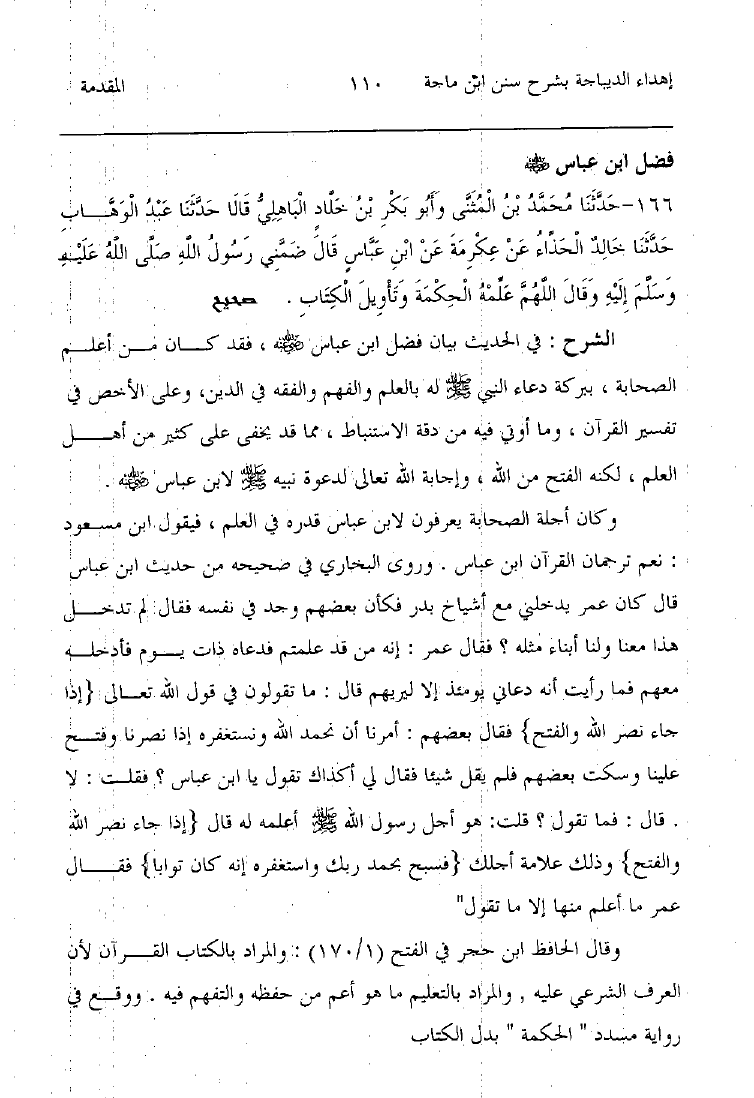 إهداء الديباجة بشرح سنن ابن ماجة ١١٠ المقدمة
فضل ابن عباس ﵁
١٦٦-حَدَّثَنَا مُحَمَّدُ بْنُ الْمُثَنَّى وَأَبُو بَكْرِ بْنُ خَلَّادٍ الْبَاهِلِيُّ قَالَا حَدَّثَنَا عَبْدُ الْوَهَّابِ
حَدَّثَنَا خَالِدٌ الْحَذَّاءُ عَنْ عِكْرِمَةَ عَنْ ابْنِ عَبَّاسٍ قَالَ ضَمَّنِي رَسُولُ اللَّهِ صَلَّى اللَّهُ عَلَيْهِ
وَسَلَّمَ إِلَيْهِ وَقَالَ اللَّهُمَّ عَلِّمْهُ الْحِكْمَةَ وَتَأْوِيلَ الْكِتَابِ . صحيح
الشرح : في الحديث بيان فضل ابن عباس ﵁ ، فقد كان من أعلم
الصحابة ، ببركة دعاء النبي ﷺ له بالعلم والفهم والفقه في الدين، وعلى الأخص في
تفسير القرآن ، وما أوتي فيه من دقة الاستنباط ، مما قد يخفى على كثير من أهل
العلم ، لكنه الفتح من الله ، وإجابة الله تعالى لدعوة نبيه ﷺ لابن عباس ﵁ .
وكان أجلة الصحابة يعرفون لابن عباس قدره في العلم ، فيقول ابن مسعود
: نعم ترجمان القرآن ابن عباس . وروى البخاري في صحيحه من حديث ابن عباس
قال كان عمر يدخلني مع أشياخ بدر فكأن بعضهم وجد في نفسه فقال لم تدخل
هذا معنا ولنا أبناء مثله ؟ فقال عمر : إنه من قد علمتم فدعاه ذات يوم فأدخله
معهم فما رأيت أنه دعاني يومئذ إلا ليريهم قال : ما تقولون في قول الله تعالى {إذا
جاء نصر الله والفتح} فقال بعضهم : أمرنا أن نحمد الله ونستغفره إذا نصرنا وفتح
علينا وسكت بعضهم فلم يقل شيئا فقال لي أكذاك تقول يا ابن عباس ؟ فقلت : لا
. قال : فما تقول ؟ قلت: هو أجل رسول الله ﷺ أعلمه له قال {إذا جاء نصر الله
والفتح} وذلك علامة أجلك {فسبح بحمد ربك واستغفره إنه كان توابا} فقال
عمر ما أعلم منها إلا ما تقول"
وقال الحافظ ابن حجر في الفتح (١/١٧٠) : والمراد بالكتاب القرآن لأن
العرف الشرعي عليه , والمراد بالتعليم ما هو أعم من حفظه والتفهم فيه . ووقع في
رواية مسدد " الحكمة " بدل الكتاب